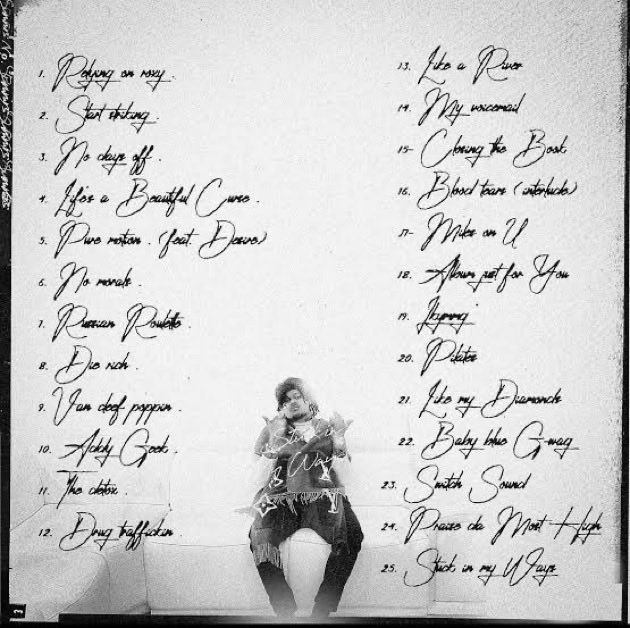 1. Relying on roxy.
2. Start striking.
3. No days off.
4. Life's a Beautiful Curse.
5. Pure motion. (feat. Desire)
6. No morals.
7. Russian Roulette.
8. Die rich.
9. Van cleef poppin.
10. Addy Geek.
11. The detox.
12. Drug traffickin.
13. Like a River
14. My voicemail
15- Closing the Book
16. Blood tears (interlude)
17- Miles on U
18. Album just for You
19.
20. Pilates
21. Like my Diamonds
22. Baby blue G-wag
23. Switch Sound
24. Praise da Most High
25. Stuck in my Ways
Stuck in
My Ways
3